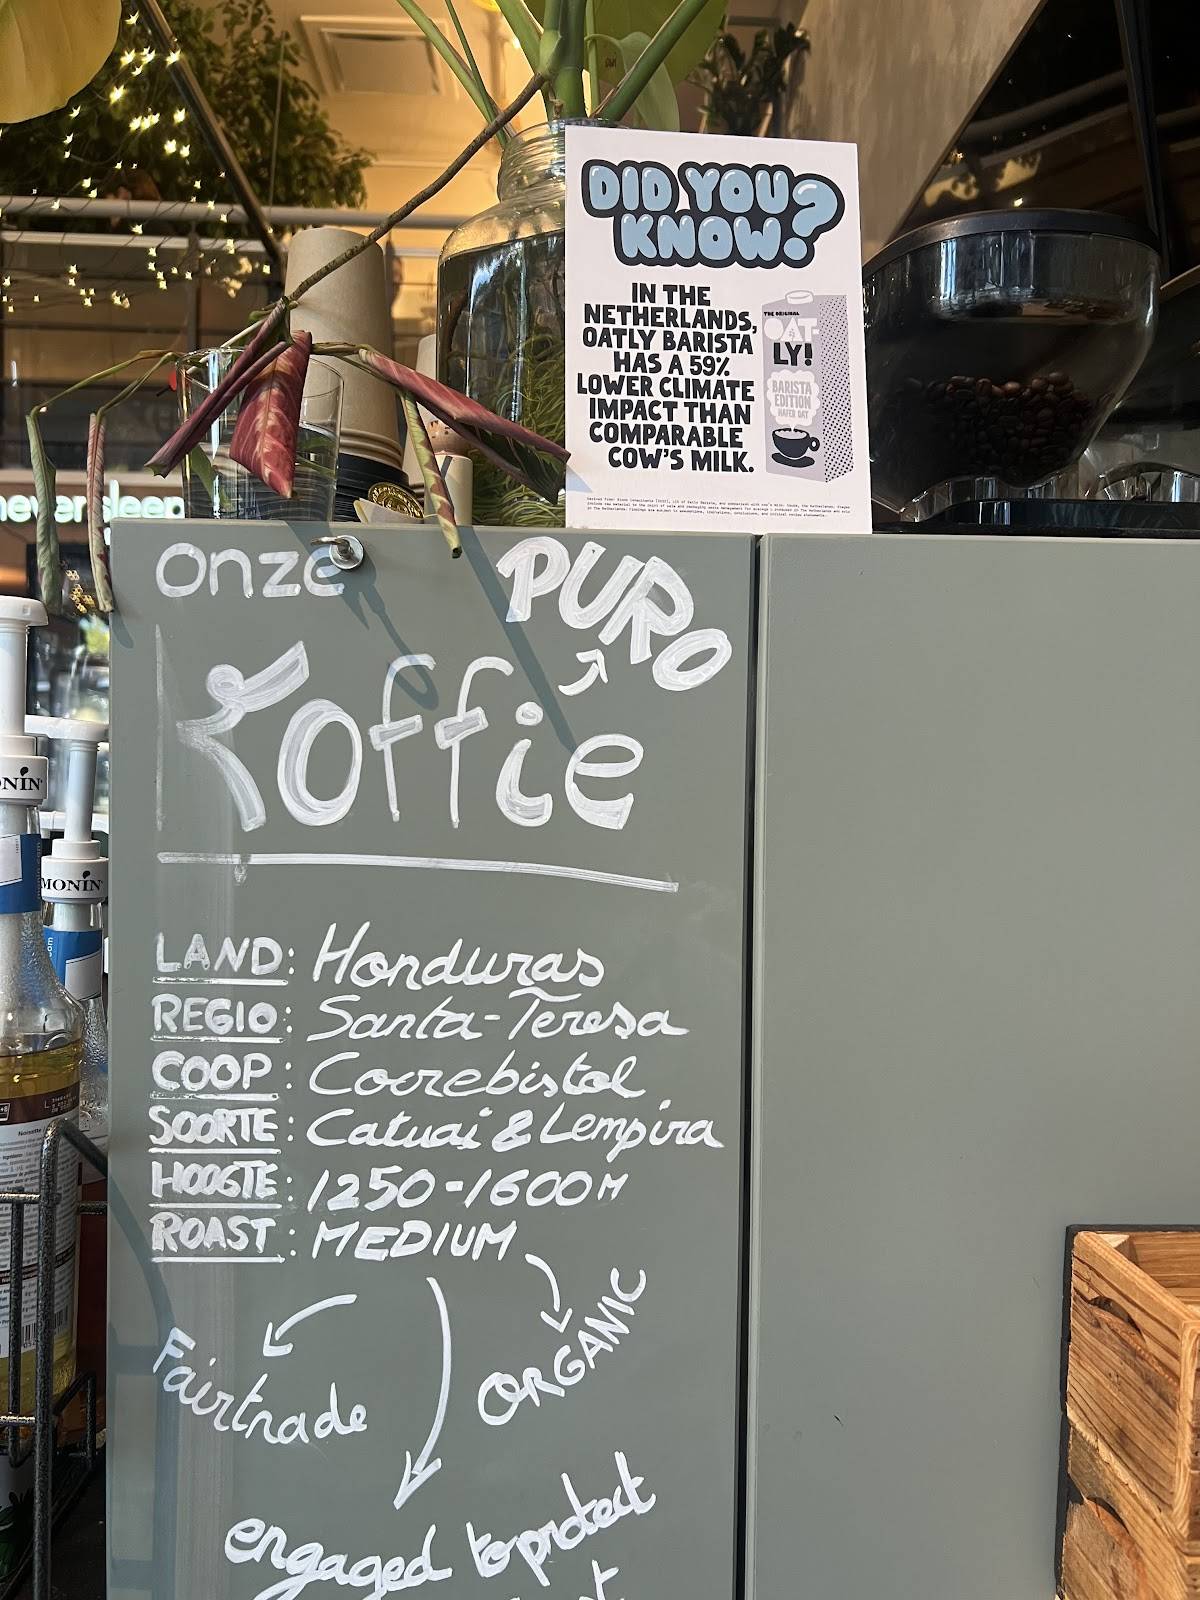 DID YOU
KNOW?
IN THE
NETHERLANDS,
OATLY BARISTA
HAS A 59%
LOWER CLIMATE
IMPACT THAN
COMPARABLE
COW'S MILK.
THE ORIGINAL
OAT-
LY!
BARISTA
EDITION
HAFER OAT
never sleep
onze
PURO
Koffie
LAND: Honduras
REGIO: Santa-Teresa
COOP: Cocrebistol
SOORTE: Catuai & Lempira
HOOGTE: 1250-1600M
ROAST: MEDIUM
Fairtrade
ORGANIC
engaged to protect
MONIN
MONIN
Noisette